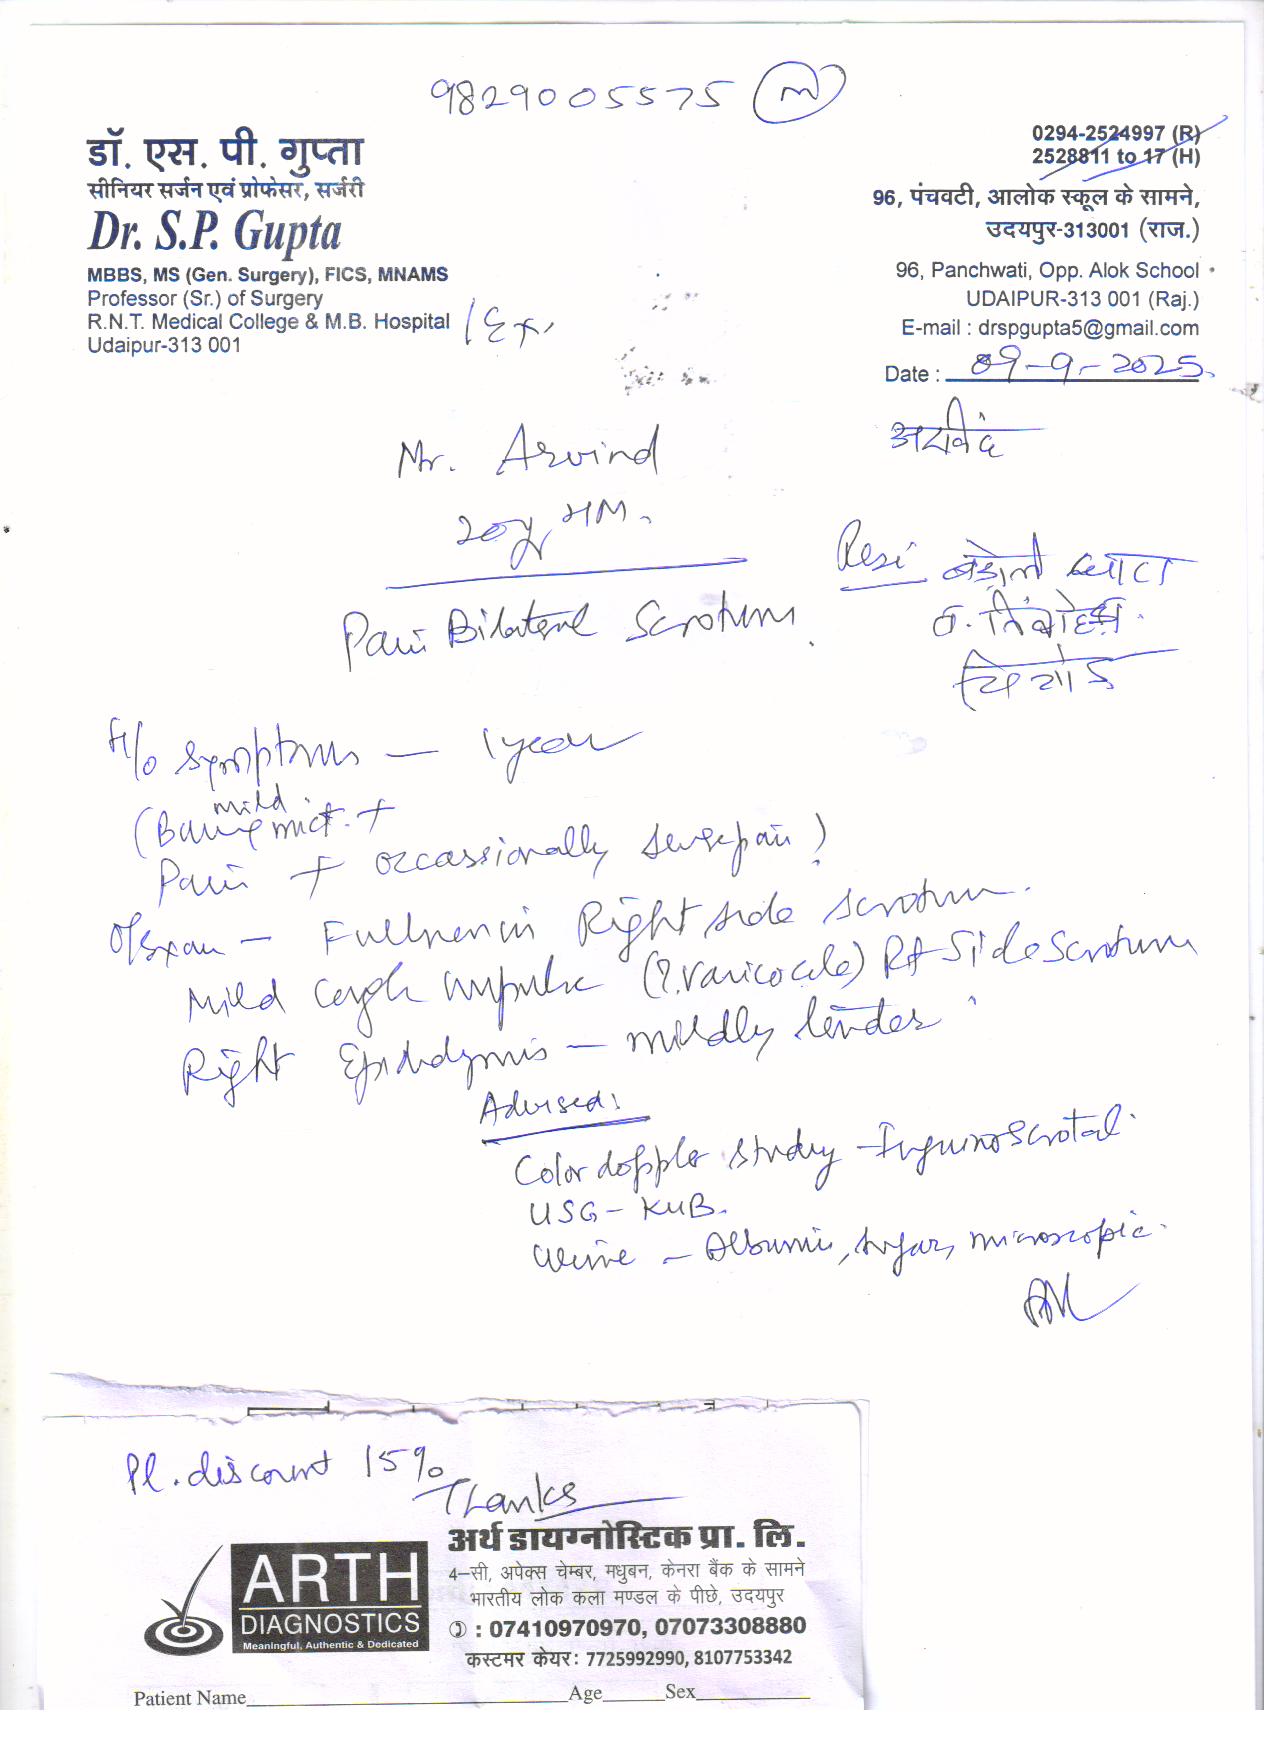 9829005575 (M)
डॉ. एस. पी. गुप्ता
सीनियर सर्जन एवं प्रोफेसर, सर्जरी
Dr. S.P. Gupta
MBBS, MS (Gen. Surgery), FICS, MNAMS
Professor (Sr.) of Surgery
R.N.T. Medical College & M.B. Hospital (Ex.
Udaipur-313 001
0294-2524997 (R)
2528811 to 17 (H)
96, पंचवटी, आलोक स्कूल के सामने,
उदयपुर-313001 (राज.)
96, Panchwati, Opp. Alok School
UDAIPUR-313 001 (Raj.)
E-mail : drspgupta5@gmail.com
Date : 09-9-2025
Mr. Arvind
20y, HM.
Resi
Pain Bilateral Scrotum.
H/o symptoms - 1 year
mild
mict. +
Pain + occassionally severe pain)
O/Exam - Fullness in Right side scrotum.
Mild Cough impulse (?. Varicocele) Rt Side Scrotum
Right Epididymis - mildly tender.
Advised:
Color doppler study - Inguinoscrotal.
USG - KUB.
Urine - Albumin, sugar, microscopic.
Pl. discount 15%
Thanks
ARTH
DIAGNOSTICS
Meaningful, Authentic & Dedicated
अर्थ डायग्नोस्टिक प्रा. लि.
4–सी, अपेक्स चेम्बर, मधुबन, केनरा बैंक के सामने
भारतीय लोक कला मण्डल के पीछे, उदयपुर
: 07410970970, 07073308880
कस्टमर केयर: 7725992990, 8107753342
Patient Name Age Sex